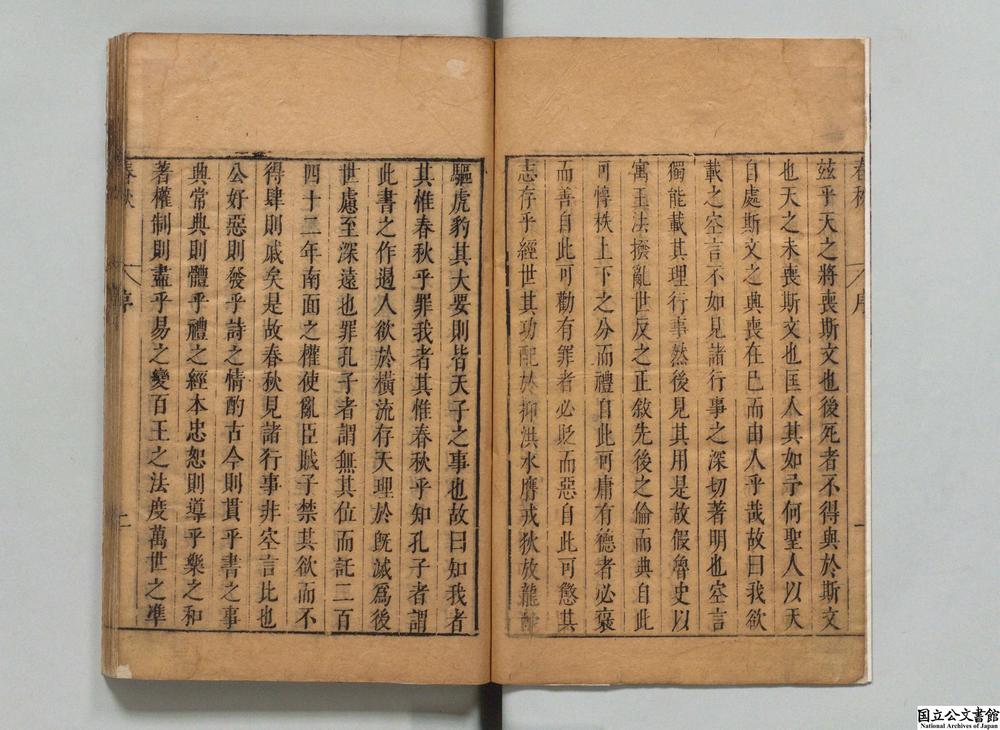 春秋 序 一
玆乎天之將喪斯文也後死者不得與於斯文
也天之未喪斯文也匡人其如予何聖人以天
自處斯文之興喪在己而由人乎哉故曰我欲
載之空言不如見諸行事之深切著明也空言
獨能載其理行事然後見其用是故假魯史以
寓王法撥亂世反之正敘先後之倫而典自此
可惇秩上下之分而禮自此可庸有德者必褒
而善自此可勸有罪者必貶而惡自此可懲其
志存乎經世其功配於抑洪水膺戎狄放龍蛇
驅虎豹其大要則皆天子之事也故曰知我者
其惟春秋乎罪我者其惟春秋乎知孔子者謂
此書之作遏人欲於橫流存天理於旣滅爲後
世慮至深遠也罪孔子者謂無其位而託二百
四十二年南面之權使亂臣賊子禁其欲而不
得肆則戚矣是故春秋見諸行事非空言比也
公好惡則發乎詩之情酌古今則貫乎書之事
興常典則體乎禮之經本忠恕則導乎樂之和
著權制則盡乎易之變百王之法度萬世之準
春秋 序 二
国立公文書館
National Archives of Japan